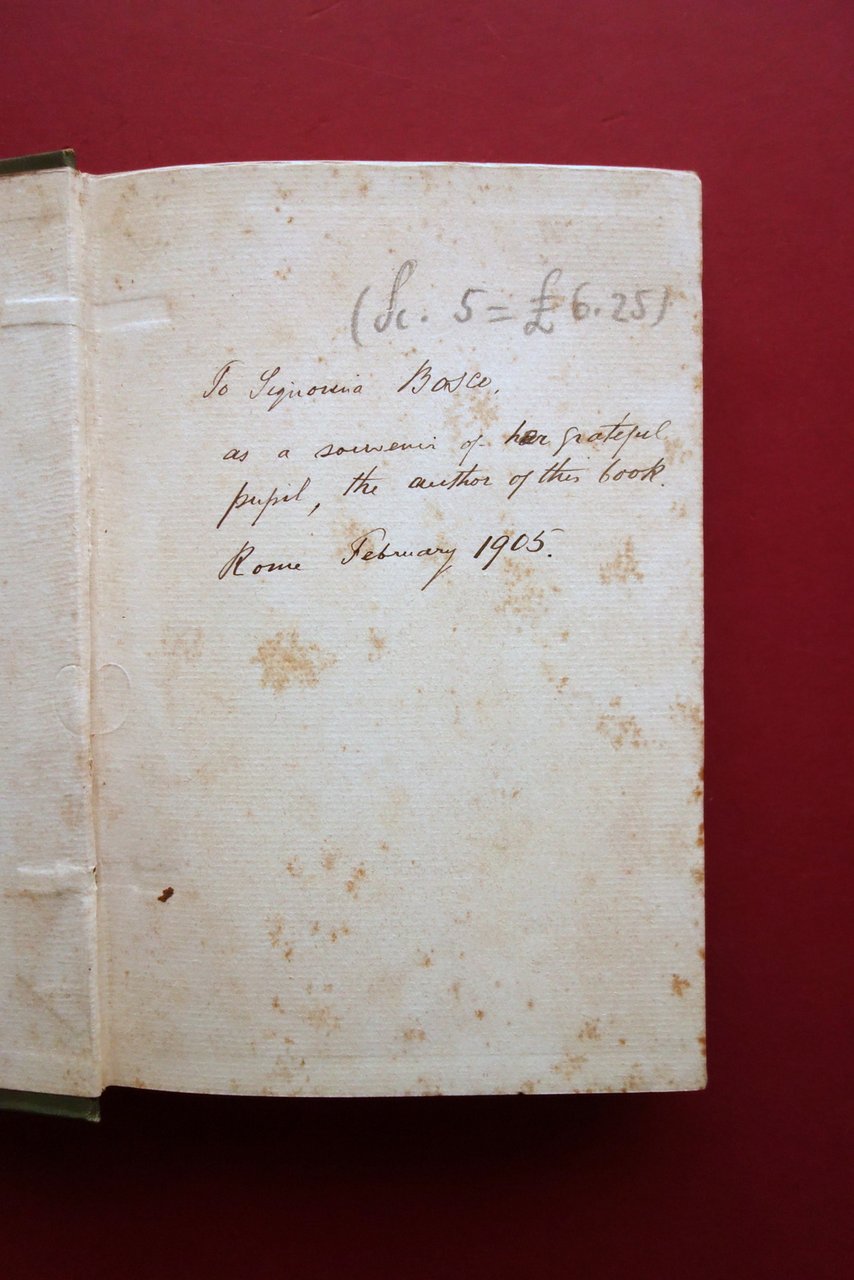 (Sc. 5 = £ 6.25)
To Signorina Bosco,
as a souvenir of her grateful
pupil, the author of this book.
Rome February 1905.